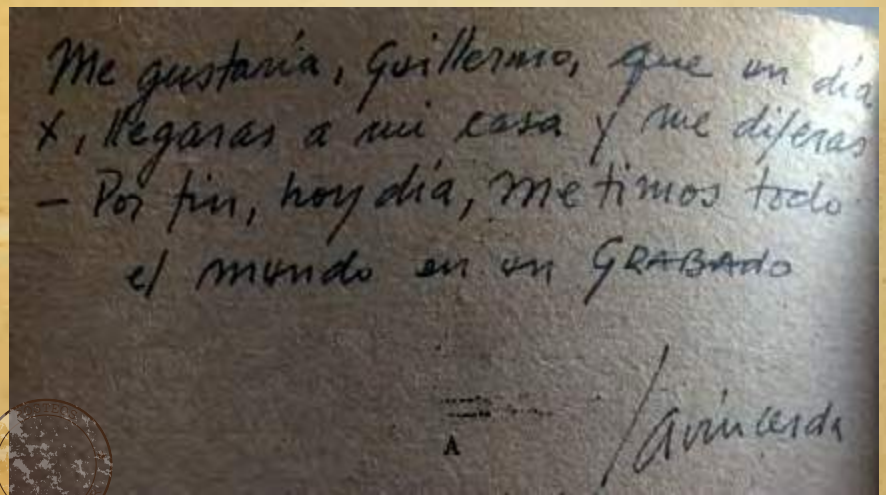 Me gustaría, Guillermo, que un día
X, llegaras a mi casa y me dijeras
- Por fin, hoy día, metimos todo
el mundo en un GRABADO
A